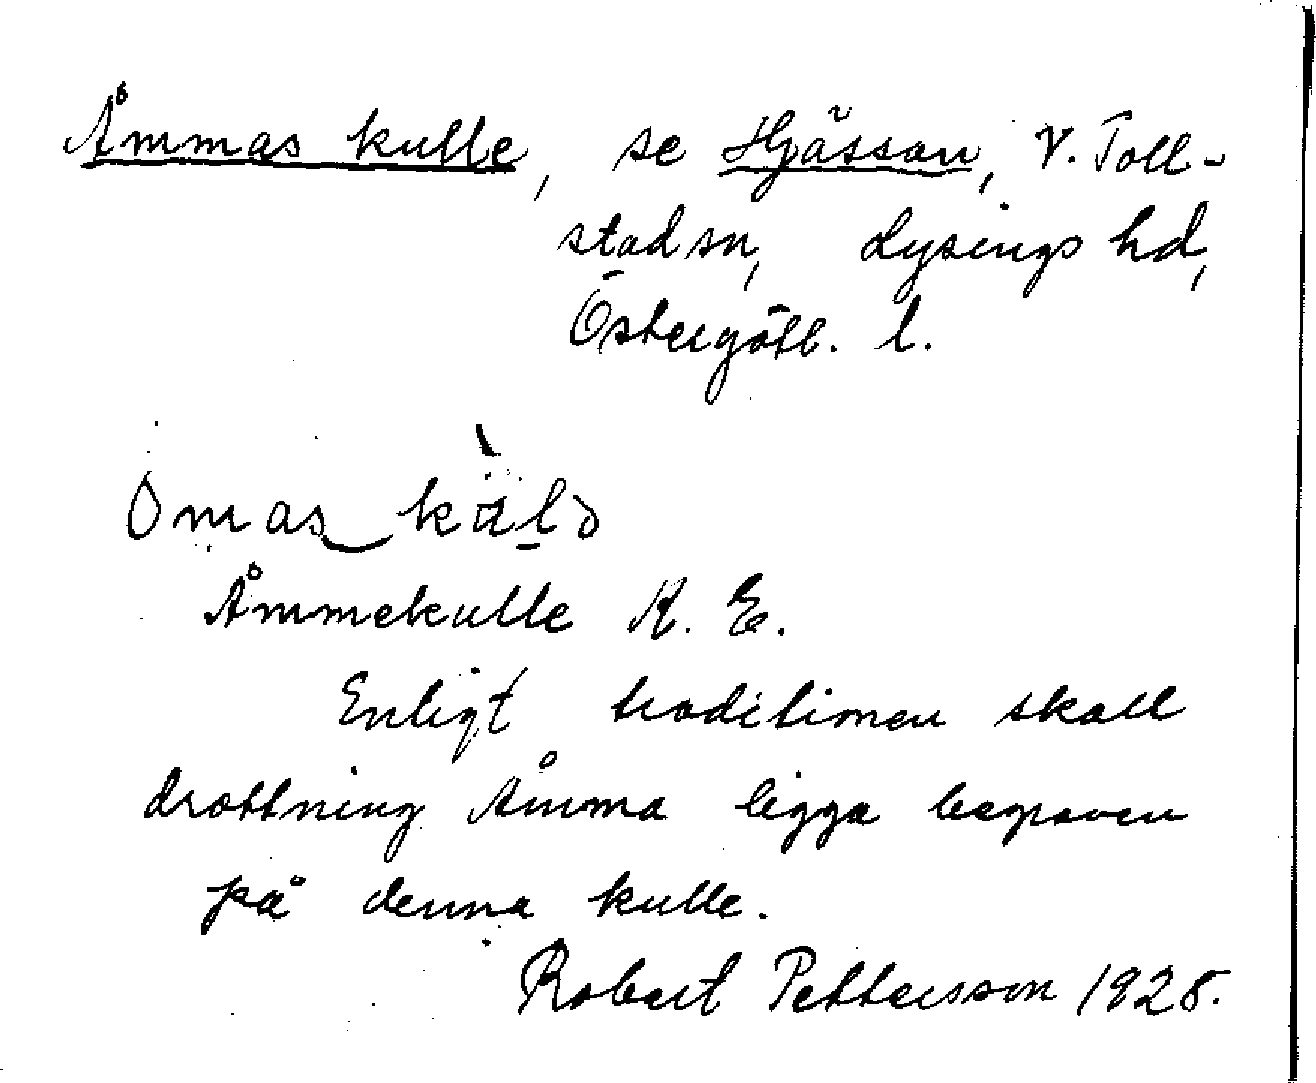 Åmmas kulle, se Hjässan, V. Toll-
stad sn, Lysings hd,
Östergötl. l.
Omas käld
Åmmekulle K. E.
Enligt traditionen skall
drottning Åmma ligga begraven
på denna kulle.
Robert Pettersson 1928.